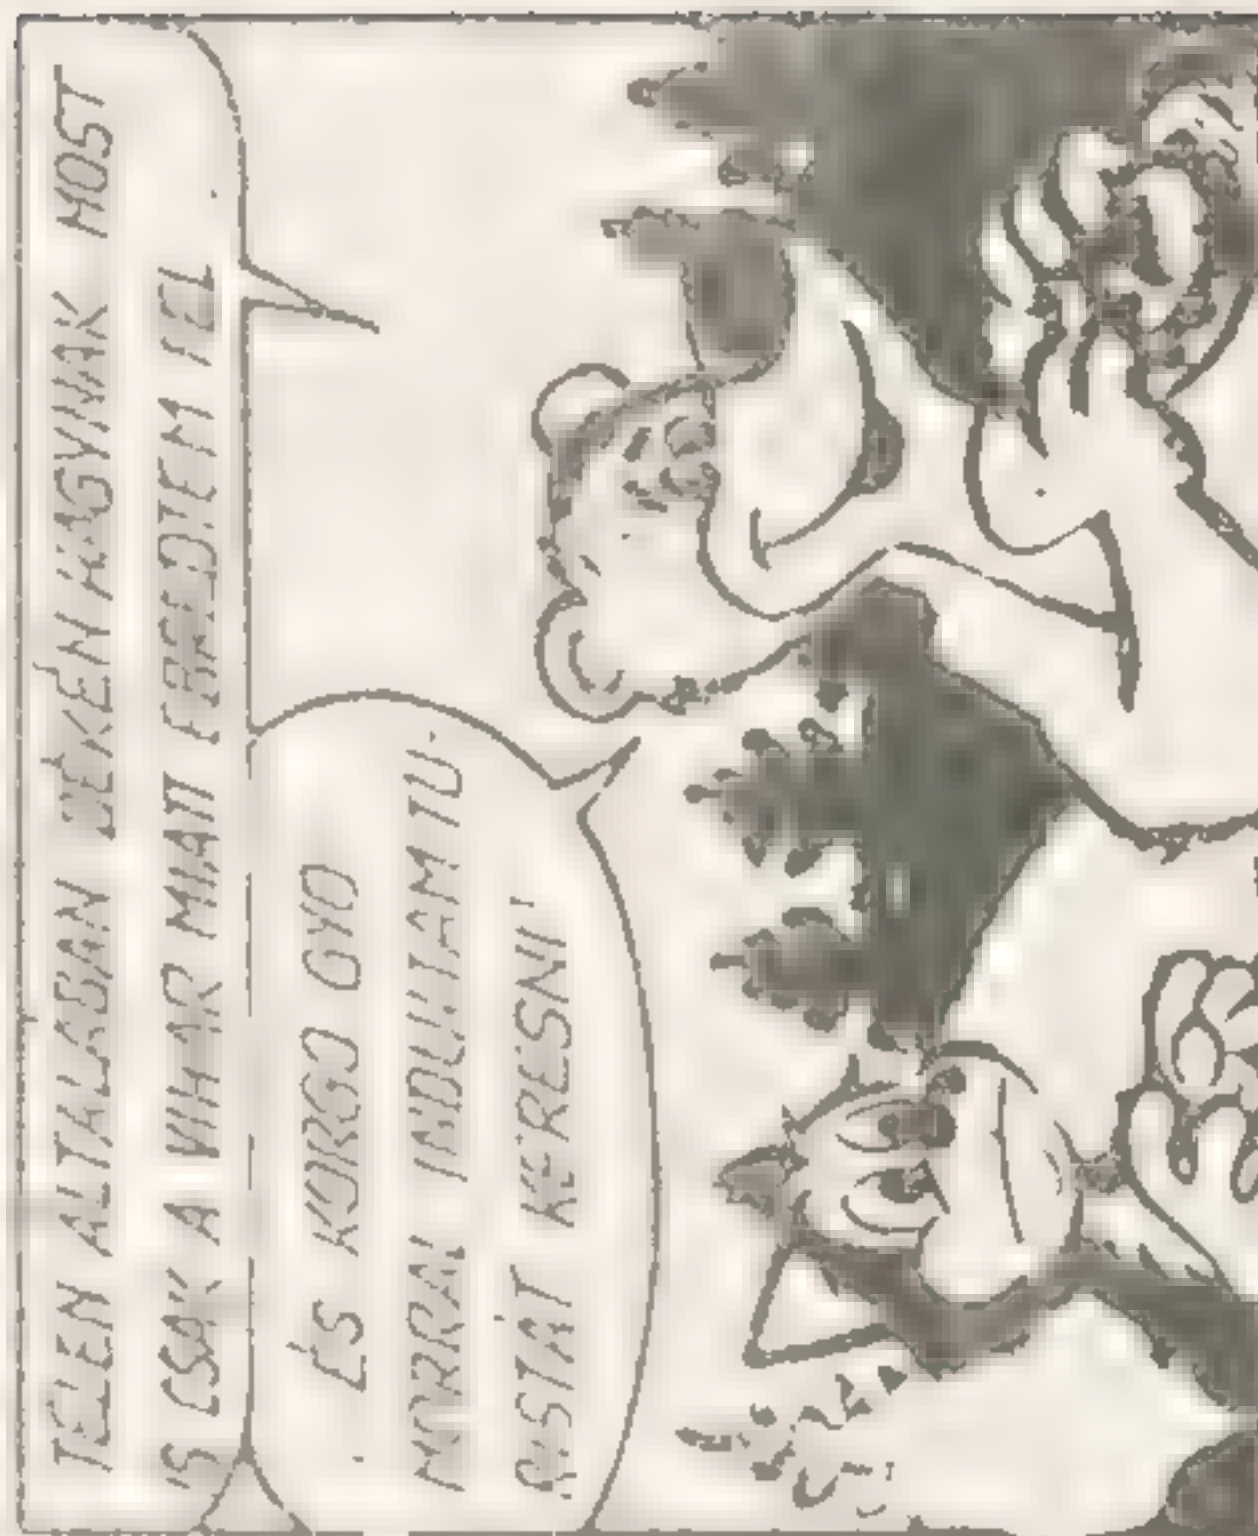 TÉLEN ÁLTALÁBAN BÉKÉN HAGYNAK MOST
IS CSAK A VIHAR MIATT ÉBREDTEM FEL
ÉS KORGÓ GYO
MORRAL INDULTAM TÚ-
RISTÁT KERESNI!